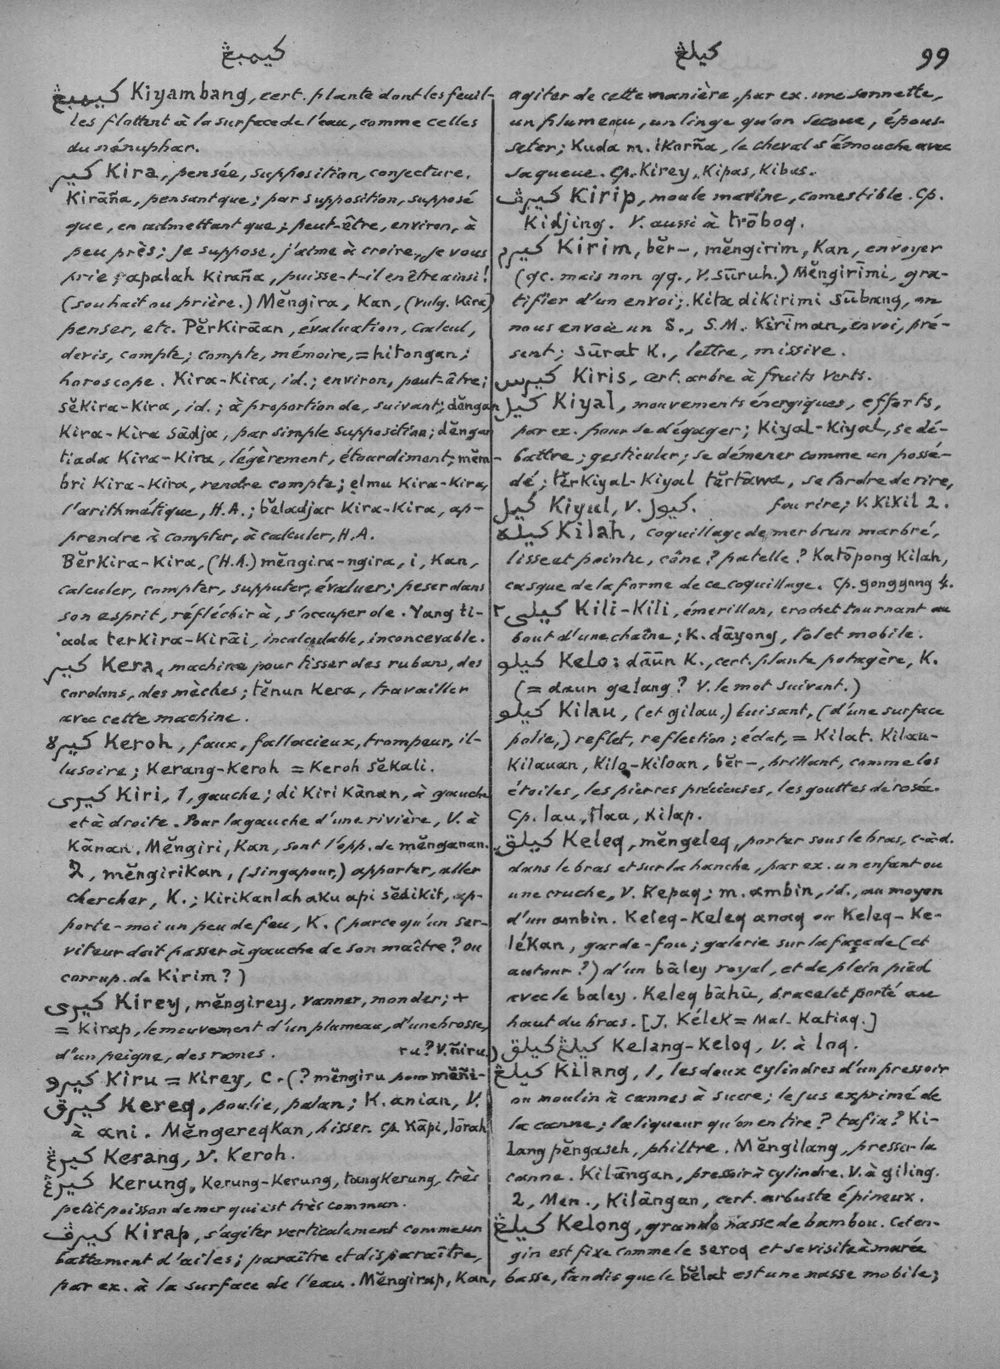 كيمبڠ كيلڠ 99
كيمبڠ Kiyambang, cert. plante dont les feuil-
les flottent à la surface de l'eau, comme celles
du nénuphar.
كير Kira, pensée, supposition, conjecture.
Kirāña, pensant que; par supposition, supposé
que, en admettant que; peut-être, environ, à
peu près; je suppose, j'aime à croire, je vous
prie; apalah Kiraña, puisse-t-il en être ainsi!
(souhait ou prière.) Mĕngira, Kan, (vulg. Kira)
penser, etc. PĕrKirāan, évaluation, calcul,
devis, compte; compte, mémoire, = hitongan;
horoscope. Kira-Kira, id.; environ, peut-être;
sĕKira-Kira, id.; à proportion de, suivant; dĕngan
Kira-Kira sādja, par simple supposition; dĕngan
tiada Kira-Kira, légèrement, étourdiment; mĕm-
bri Kira-Kira, rendre compte; elmu Kira-Kira,
l'arithmétique, H.A.; bĕladjar Kira-Kira, ap-
prendre à compter, à calculer, H.A.
BĕrKira-Kira, (H.A.) mĕngira-ngira, i, Kan,
calculer, compter, supputer, évaluer; peser dans
son esprit, réfléchir à, s'occuper de. Yang ti-
ada terKira-Kirāi, incalculable, inconcevable.
كير Kera, machine pour tisser des rubans, des
cordons, des mèches; tĕnun Kera, travailler
avec cette machine.
كيره Keroh, faux, fallacieux, trompeur, il-
lusoire; Kerang-Keroh = Keroh sĕkali.
كيرى Kiri, 1, gauche; di Kiri Kānan, à gauche
et à droite. Pour la gauche d'une rivière, V. à
Kānan. Mĕngiri, Kan, sont l'opp. de mĕnganan.
2, mĕngiriKan, (Singapour,) apporter, aller
chercher, K.; KiriKanlah aku api sĕdiKit, ap-
porte-moi un peu de feu, K. (parce qu'un ser-
viteur doit passer à gauche de son maître? ou
corrup. de Kirim?)
كيرى Kirey, mĕngirey, vanner, monder; +
= Kirap, le mouvement d'un plumeau, d'une brosse,
d'un peigne, des rames. ru? V. ñiru.)
كيرو Kiru = Kirey, C. (? mĕngiru pour mĕñi-
كيرق Kereq, poulie, palan; K. anian, V.
à ani. MĕngereqKan, hisser. Cp. Kāpi, lōrah
كيرڠ Kerang, V. Keroh.
كيرڠ Kerung, Kerung-Kerung, tangKerung, très
petit poisson de mer qui est très commun.
كيرڤ Kirap, s'agiter verticalement comme un
battement d'ailes; paraître et disparaître,
par ex. à la surface de l'eau. Mĕngirap, Kan,
agiter de cette manière, par ex. une sonnette,
un plumeau, un linge qu'on secoue, épous-
seter; Kuda m. iKorña, le cheval s'émouche avec
sa queue. Cp. Kirey, Kipas, Kibas.
كيرڤ Kirip, moule marine, comestible. Cp.
Kidjing. V. aussi à trōboq.
كيرم Kirim, bĕr-, mĕngirim, Kan, envoyer
(qc. mais non qq., V. Sūruh.) Mĕngirīmi, gra-
tifier d'un envoi; Kita diKirimi Sūbang, on
nous envoie un S., S.M. Kirīman, envoi, pré-
sent; sūrat K., lettre, missive.
كيرس Kiris, cert. arbre à fruits verts.
كيل Kiyal, mouvements énergiques, efforts,
par ex. pour se dégager; Kiyal-Kiyal, se dé-
battre; gesticuler; se démener comme un possé-
dé; tĕrKiyal-Kiyal tĕrtāwa, se tordre de rire,
كيل Kiyul, V. كيول. fou rire; V. KiKil 2.
كيله Kilah, coquillage de mer brun marbré,
lisse et pointu, cône? patelle? Katōpong Kilah,
casque de la forme de ce coquillage. Cp. gonggong 4.
كيلى٢ Kili-Kili, émerillon, crochet tournant au
bout d'une chaîne; K. dāyong, tolet mobile.
كيلو Kelo: dāūn K., cert. plante potagère, K.
(= daun gelang? V. le mot suivant.)
كيلو Kilau, (et gilau,) luisant, (d'une surface
polie,) reflet, reflection; éclat, = Kilat. Kilau-
Kilauan, Kilo-Kiloan, bĕr-, brillant, comme les
étoiles, les pierres précieuses, les gouttes de rosée.
Cp. lau, flau, Kilap.
كيلق Keleq, mĕngeleq, porter sous le bras, c-à-d.
dans le bras et sur la hanche, par ex. un enfant ou
une cruche, V. Kepaq; m. ambin, id., au moyen
d'un ambin. Keleq-Keleq anaq ou Keleq-Ke-
léKan, garde-fou; galerie sur la façade (et
autour?) d'un bāley royal, et de plein pied
avec le baley. Keleq bāhū, bracelet porté au
haut du bras. [J. KéleK = Mal. Katiaq.]
كيلڠ كيلق Kelang-Keloq, V. à loq.
كيلڠ Kilang, 1, les deux cylindres d'un pressoir
ou moulin à cannes à sucre; le jus exprimé de
la canne; la liqueur qu'on en tire? tafia? Ki-
lang pĕngaseh, philtre. Mĕngilang, presser la
canne. Kilāngan, pressoir à cylindre. V. à giling.
2, Men., Kilāngan, cert. arbuste épineux.
كيلڠ Kelong, grande nasse de bambou. Cet en-
gin est fixe comme le seroq et se visite à marée
basse, tandis que le bĕlat est une nasse mobile;